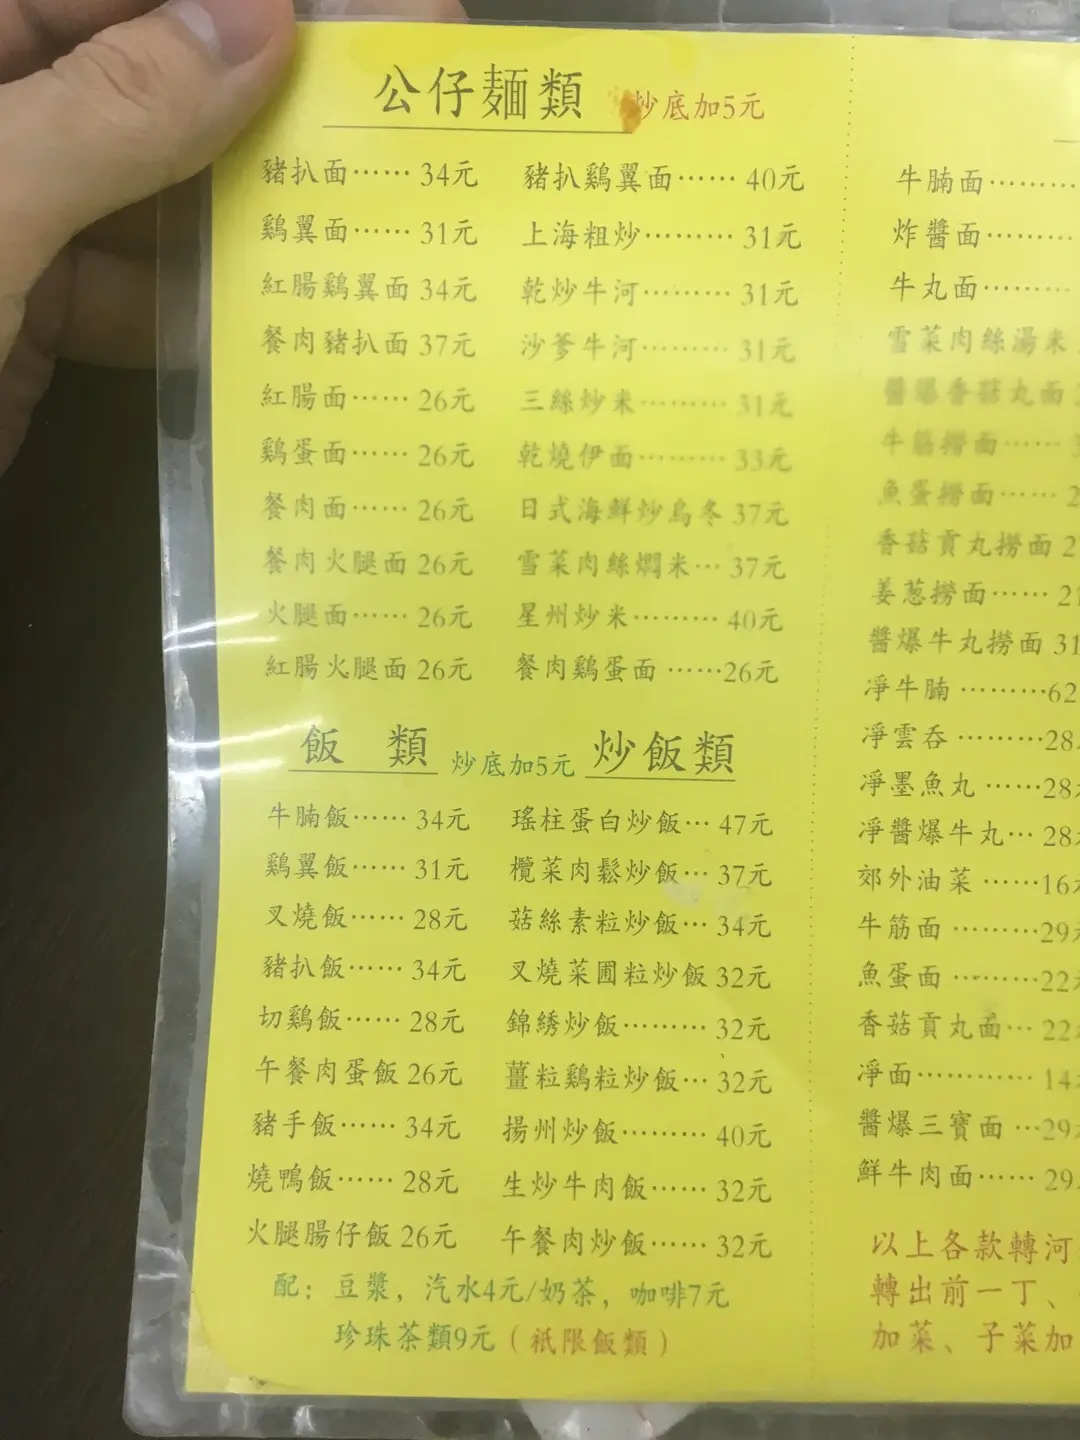 公仔麵類 炒底加5元
豬扒面…… 34元
雞翼面…… 31元
紅腸鷄翼面 34元
餐肉豬扒面 37元
紅腸面…… 26元
鷄蛋面…… 26元
餐肉面…… 26元
餐肉火腿面 26元
火腿面…… 26元
紅腸火腿面 26元
豬扒鷄翼面…… 40元
上海粗炒……… 31元
乾炒牛河……… 31元
沙爹牛河……… 31元
三絲炒米……… 31元
乾燒伊面……… 33元
日式海鮮炒烏冬 37元
雪菜肉絲燜米… 37元
星州炒米……… 40元
餐肉鷄蛋面 ……26元
飯 類 炒底加5元 炒飯類
牛腩飯…… 34元
鷄翼飯…… 31元
叉燒飯…… 28元
豬扒飯…… 34元
切鷄飯…… 28元
午餐肉蛋飯 26元
豬手飯…… 34元
燒鴨飯…… 28元
火腿腸仔飯 26元
瑤柱蛋白炒飯… 47元
欖菜肉鬆炒飯… 37元
菇絲素粒炒飯… 34元
叉燒菜圃粒炒飯 32元
錦綉炒飯……… 32元
薑粒鷄粒炒飯… 32元
揚州炒飯……… 40元
生炒牛肉飯…… 32元
午餐肉炒飯…… 32元
配：豆漿，汽水4元/奶茶，咖啡7元
珍珠茶類9元（祇限飯類）
牛腩面………
炸醬面………
牛丸面………
雪菜肉絲湯米
醬爆香菇丸面
牛筋撈面……
魚蛋撈面…… 2
香菇貢丸撈面 2
姜葱撈面…… 21
醬爆牛丸撈面 31
凈牛腩 ………62
凈雲吞 ………28
凈墨魚丸 ……28
凈醬爆牛丸… 28
郊外油菜 ……16
牛筋面 ………29
魚蛋面 ………22
香菇貢丸面… 22
凈面………… 14
醬爆三寶面 …29
鮮牛肉面…… 29
以上各款轉河
轉出前一丁、
加菜、子菜加